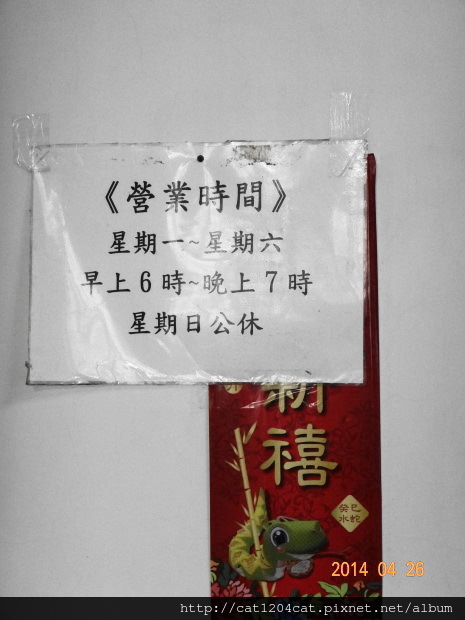 《營業時間》
星期一~星期六
早上6時~晚上7時
星期日公休
新
禧
癸巳
水蛇
2014 04 26
http://cat1204cat.pixnet.net/album